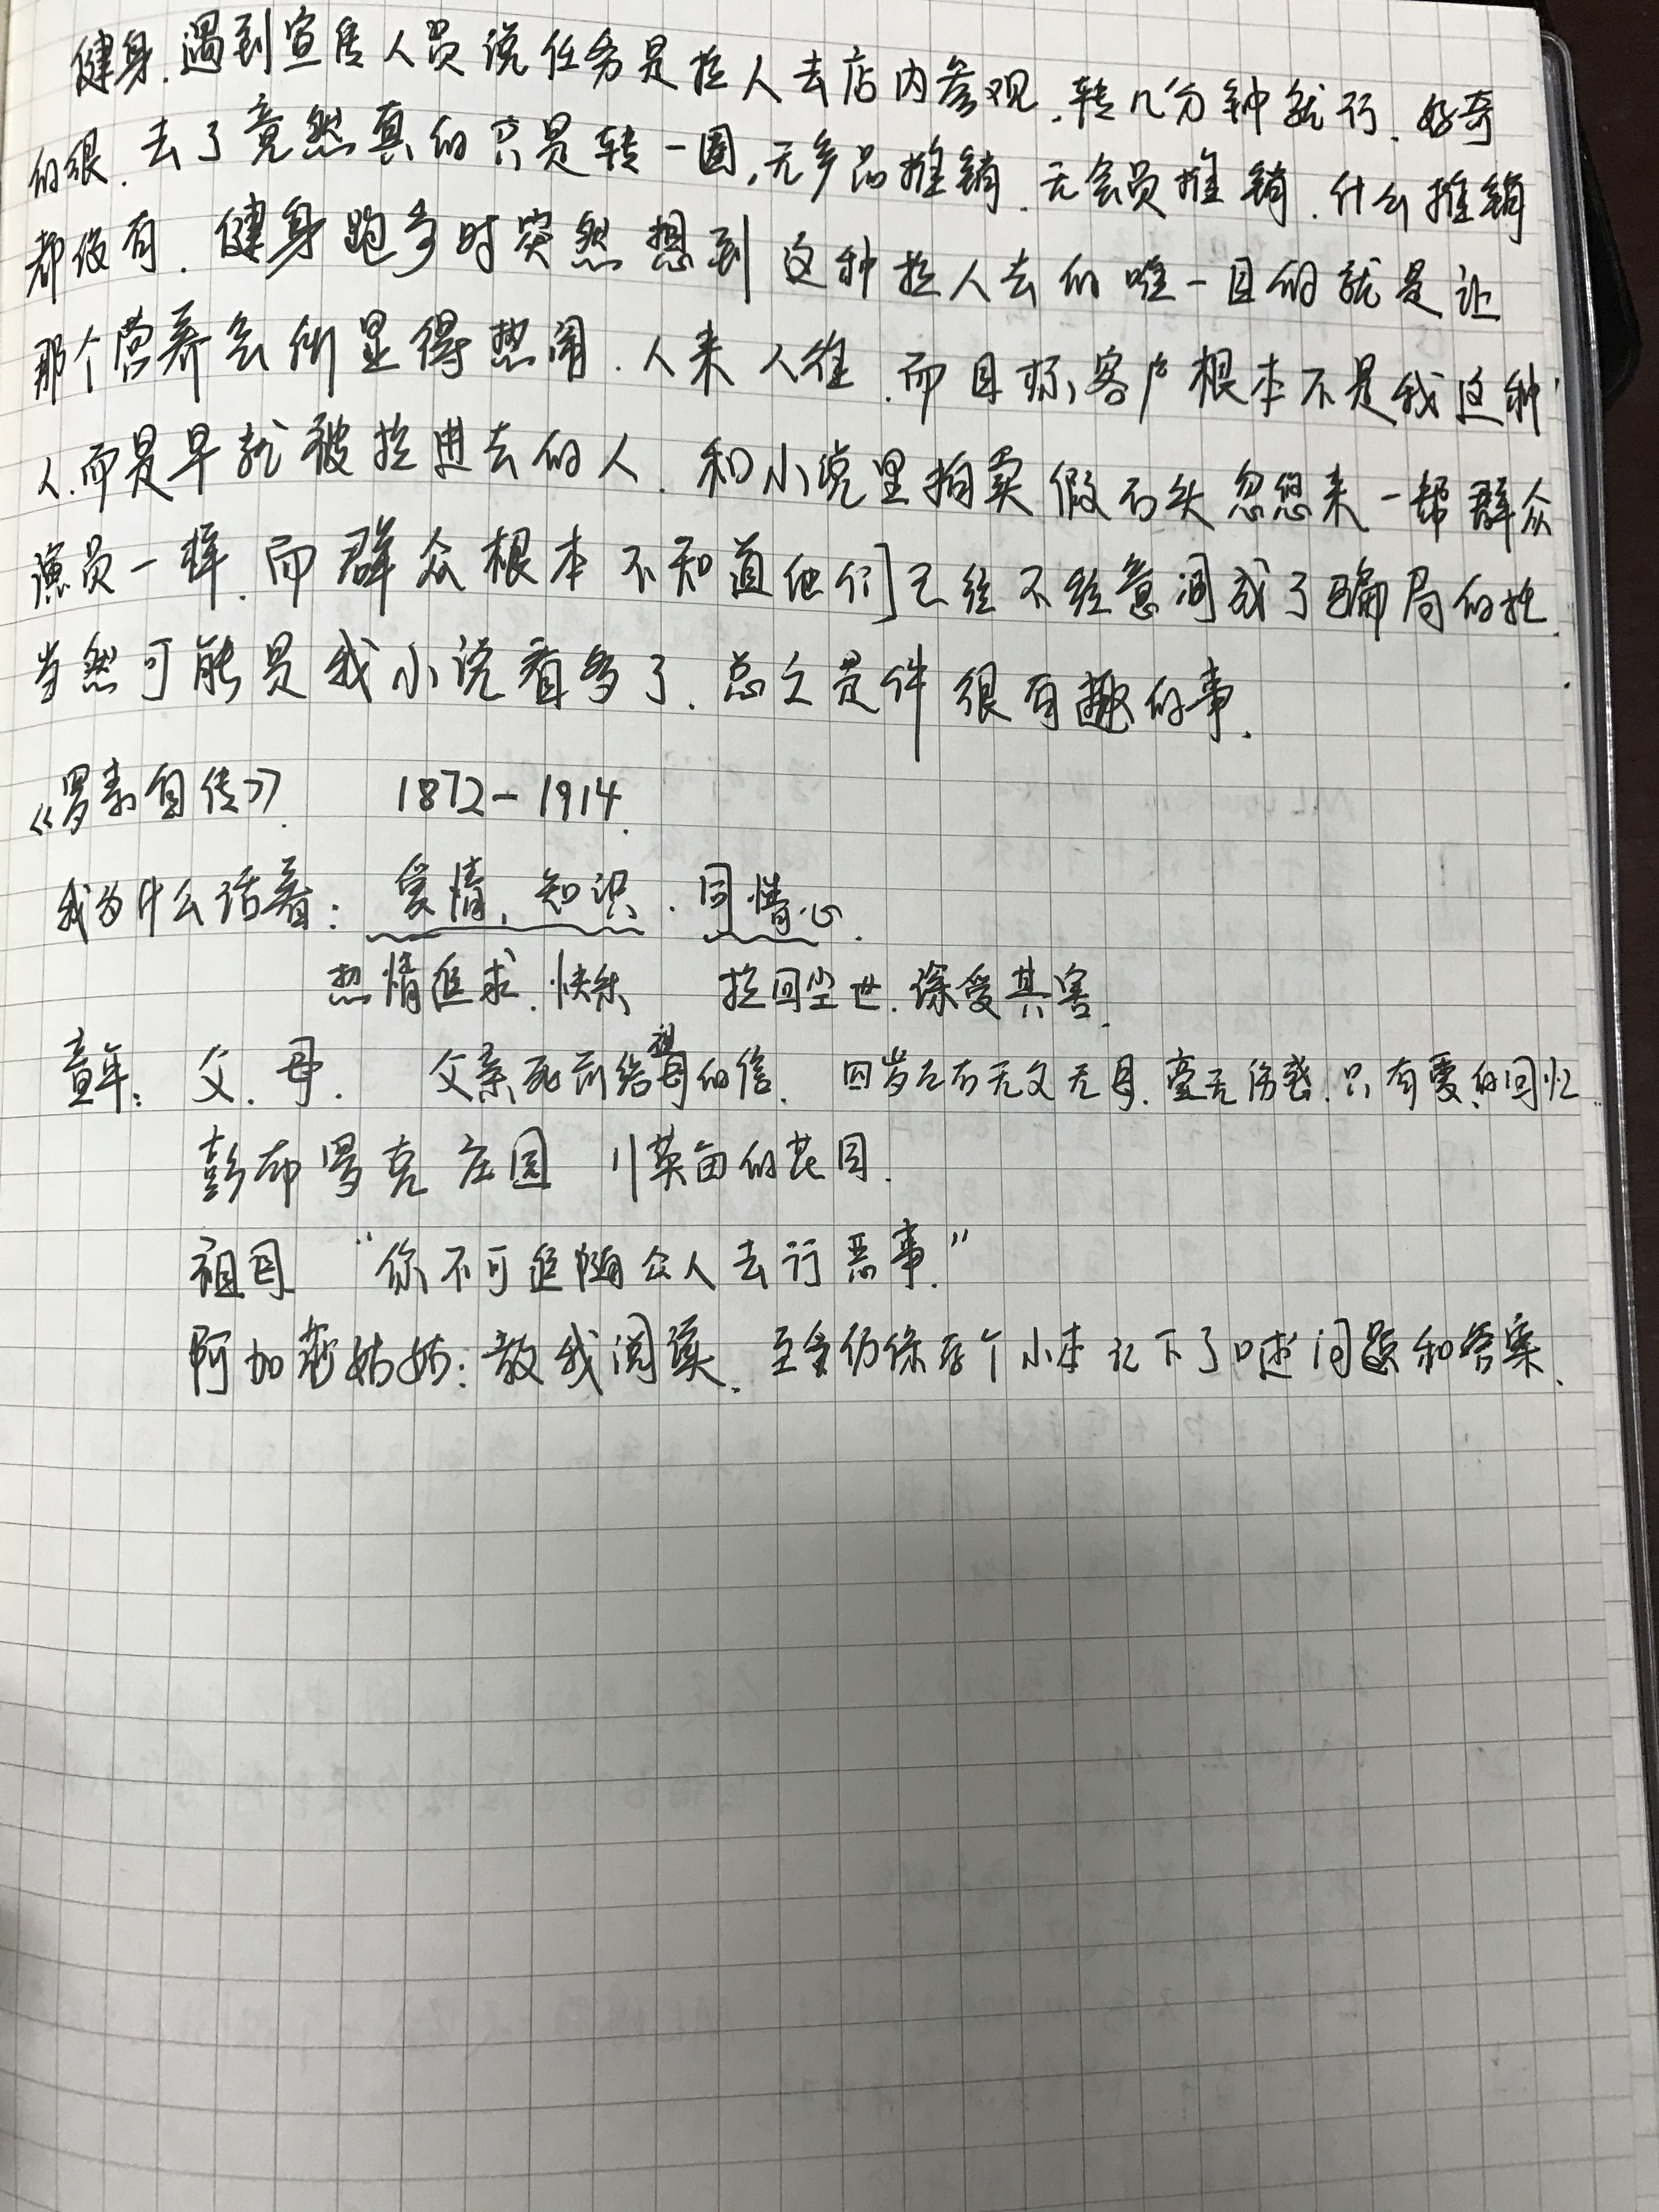 健身.遇到宣传人员说任务是拉人去店内参观.转几分钟就行.好奇
的很.去了竟然真的只是转一圈,无产品推销.无会员推销.什么推销
都没有.健身跑步时突然想到这种拉人去的唯一目的就是让
那个营养会所显得热闹.人来人往.而目标客户根本不是我这种
人.而是早就被拉进去的人.和小说里拍卖假石头忽悠来一帮群众
演员一样.而群众根本不知道他们已经不经意间成了骗局的托.
当然可能是我小说看多了.总之是件很有趣的事.
《罗素自传》. 1872-1914.
我为什么活着: 爱情、知识.同情心.
热情追求.快乐 拉回尘世.深受其害.
童年: 父.母. 父亲死前给祖母的信. 四岁左右无父无母.毫无伤感.只有零的回忆.
彭布罗克庄园 11英亩的花园.
祖母 "你不可追随众人去行恶事."
阿加莎姑姑:教我阅读.至今仍保存个小本记下了口述问题和答案.